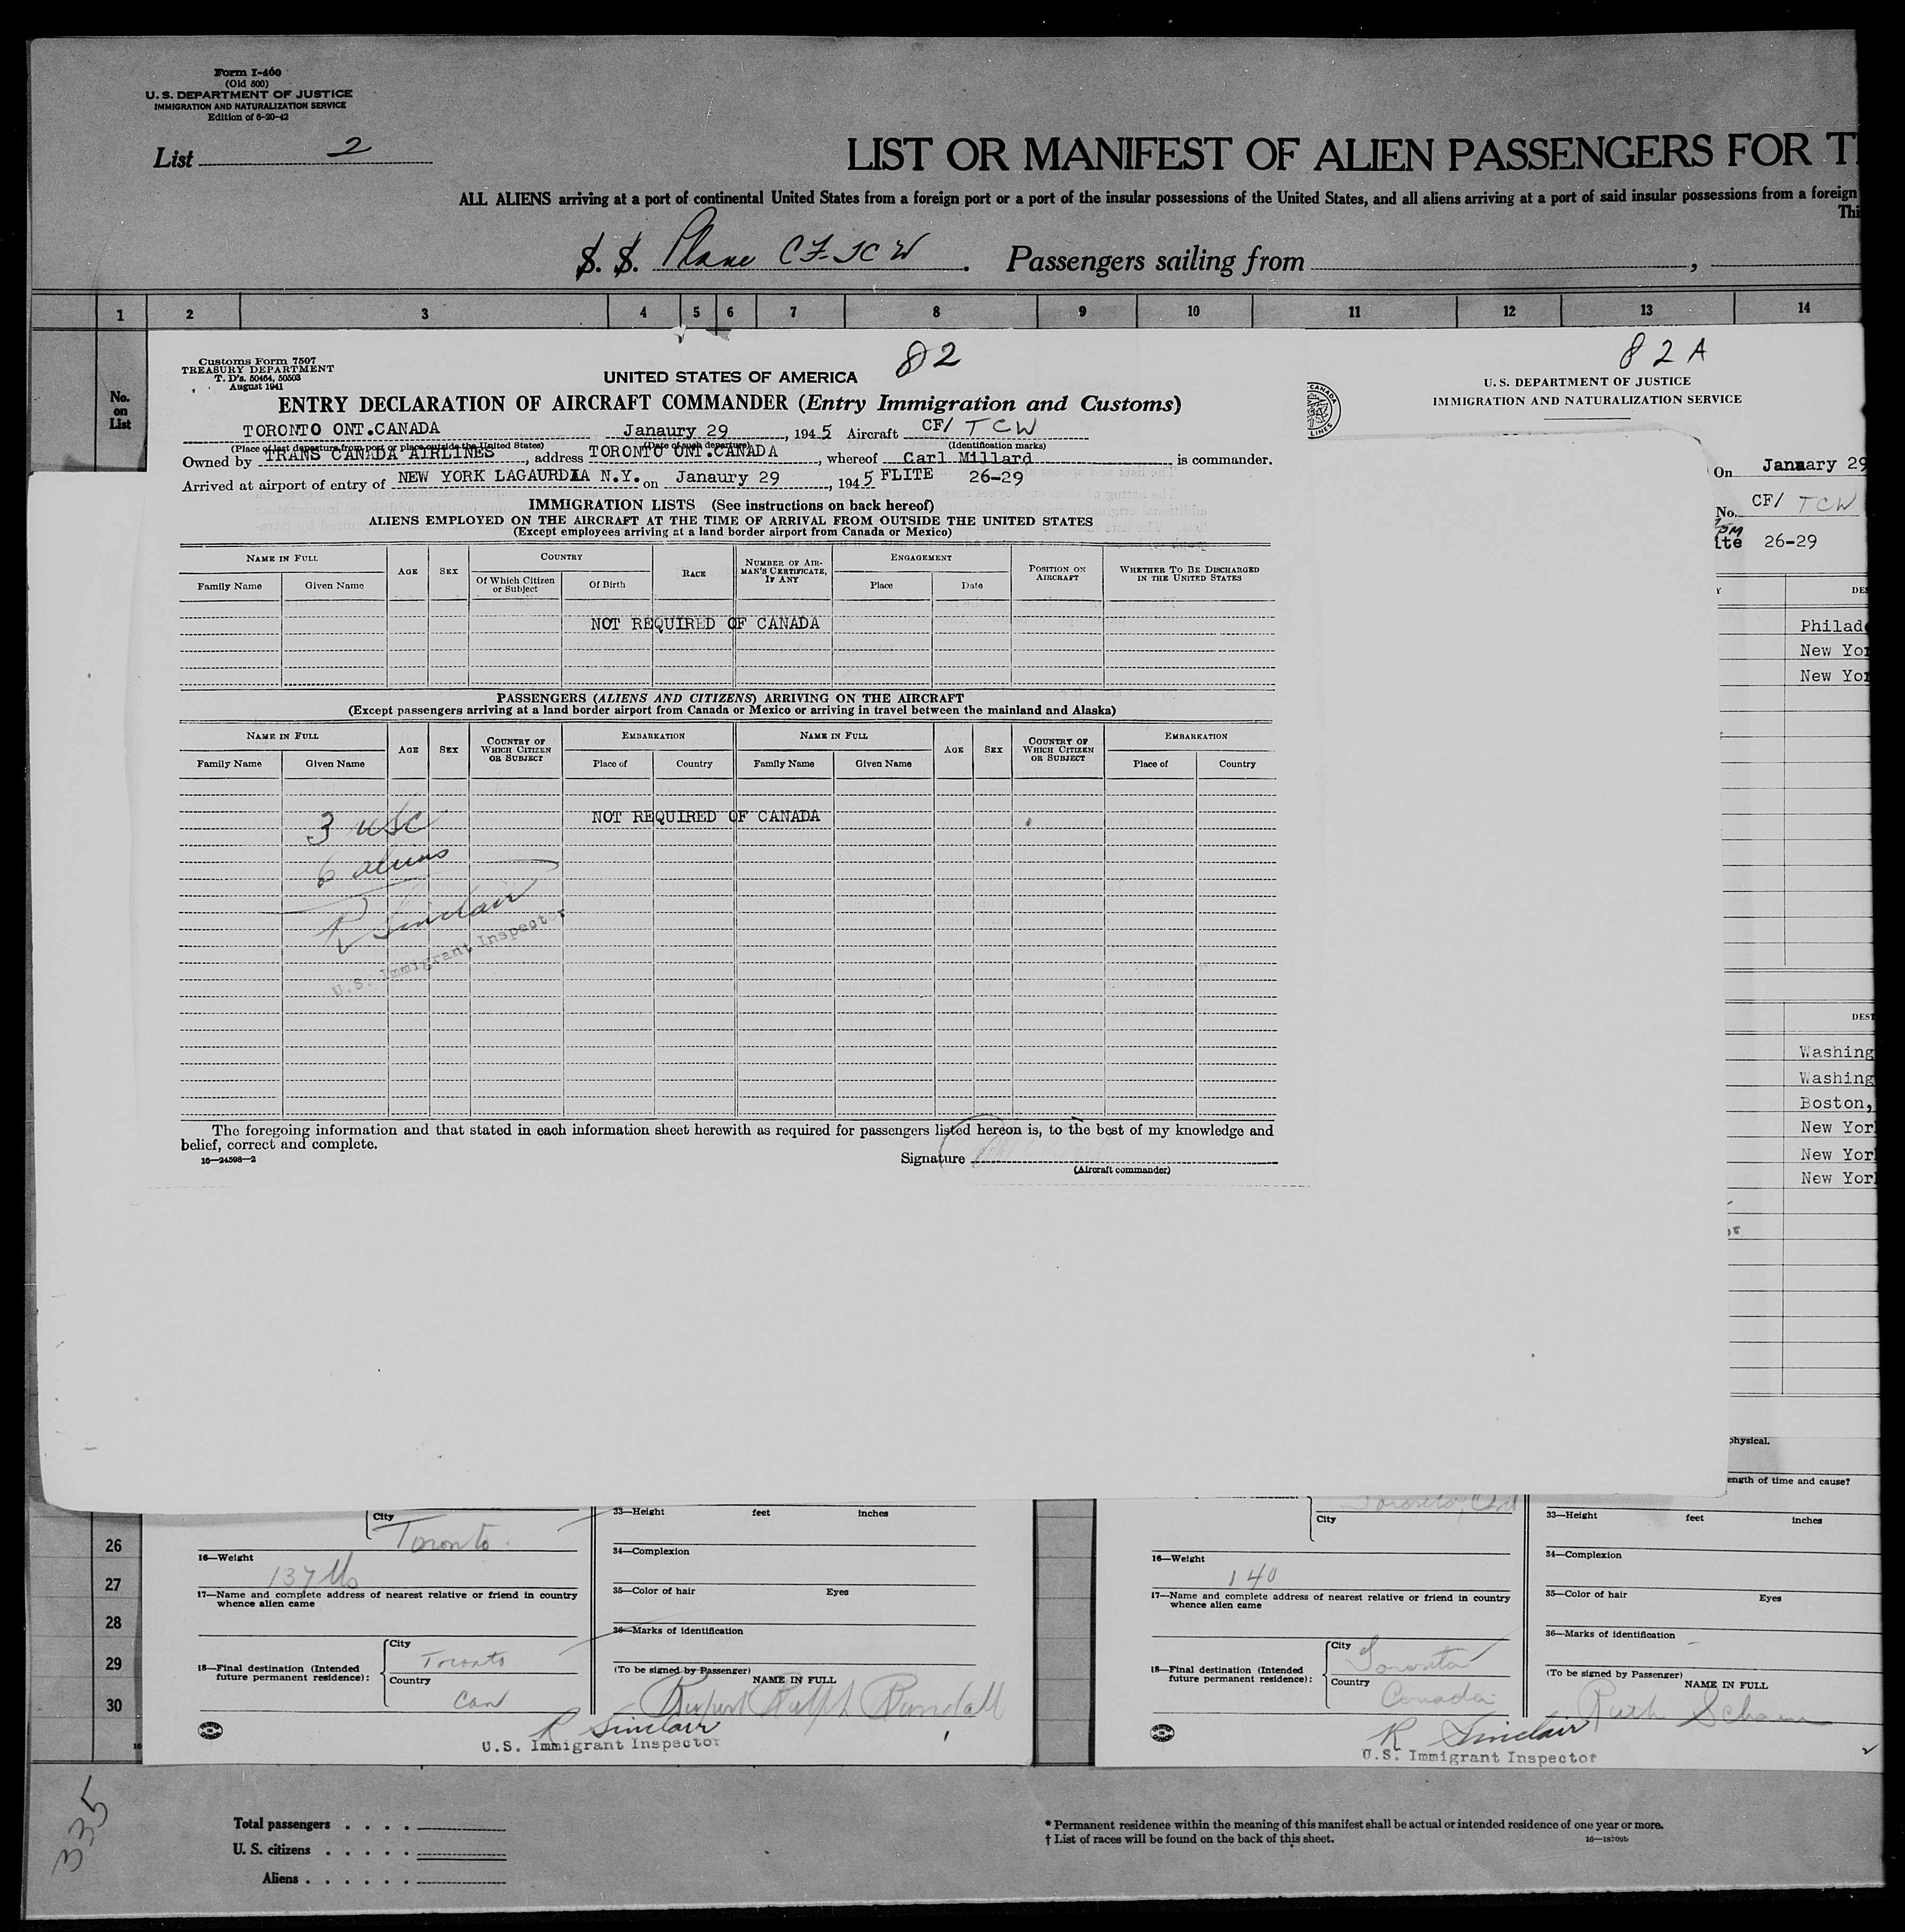 Form I-460
(Old 500)
U. S. DEPARTMENT OF JUSTICE
IMMIGRATION AND NATURALIZATION SERVICE
Edition of 6-20-42
List 2
LIST OR MANIFEST OF ALIEN PASSENGERS FOR T
ALL ALIENS arriving at a port of continental United States from a foreign port or a port of the insular possessions of the United States, and all aliens arriving at a port of said insular possessions from a foreign
Thi
S. S. Plane CF-TCW . Passengers sailing from ,
1 2 3 4 5 6 7 8 9 10 11 12 13 14
No. on List
Customs Form 7507
TREASURY DEPARTMENT
T. D's. 50464, 50503
August 1941
82
UNITED STATES OF AMERICA
ENTRY DECLARATION OF AIRCRAFT COMMANDER (Entry Immigration and Customs)
TORONTO ONT.CANADA Janaury 29 , 1945 Aircraft CF/ TCW
(Place of last departure from port or place outside the United States) (Date of such departure) (Identification marks)
Owned by TRANS CANADA AIRLINES , address TORONTO ONT.CANADA , whereof Carl Millard is commander.
Arrived at airport of entry of NEW YORK LAGAURDIA N.Y. on Janaury 29 , 1945 FLITE 26-29
IMMIGRATION LISTS (See instructions on back hereof)
ALIENS EMPLOYED ON THE AIRCRAFT AT THE TIME OF ARRIVAL FROM OUTSIDE THE UNITED STATES
(Except employees arriving at a land border airport from Canada or Mexico)
NAME IN FULL AGE SEX COUNTRY RACE NUMBER OF AIRMAN'S CERTIFICATE, IF ANY ENGAGEMENT POSITION ON AIRCRAFT WHETHER TO BE DISCHARGED IN THE UNITED STATES
Family Name Given Name Of Which Citizen or Subject Of Birth Place Date
NOT REQUIRED OF CANADA
PASSENGERS (ALIENS AND CITIZENS) ARRIVING ON THE AIRCRAFT
(Except passengers arriving at a land border airport from Canada or Mexico or arriving in travel between the mainland and Alaska)
NAME IN FULL AGE SEX COUNTRY OF WHICH CITIZEN OR SUBJECT EMBARKATION NAME IN FULL AGE SEX COUNTRY OF WHICH CITIZEN OR SUBJECT EMBARKATION
Family Name Given Name Place of Country Family Name Given Name Place of Country
NOT REQUIRED OF CANADA
3 USC
6 aliens
R Sinclair
U.S. Immigrant Inspector
The foregoing information and that stated in each information sheet herewith as required for passengers listed hereon is, to the best of my knowledge and
belief, correct and complete.
16—24598—2
Signature
(Aircraft commander)
82A
U. S. DEPARTMENT OF JUSTICE
IMMIGRATION AND NATURALIZATION SERVICE
CANADA
LINES
On January 29
No. CF/ TCW
ite 26-29
Y DES
Philad
New Yor
New Yor
DEST
Washing
Washing
Boston,
New Yor
New Yor
New Yor
physical.
ength of time and cause?
26
27
28
29
30
City Toronto
16—Weight 137 lbs
17—Name and complete address of nearest relative or friend in country
whence alien came
18—Final destination (Intended
future permanent residence):
City Toronto
Country Can
33—Height feet inches
34—Complexion
35—Color of hair Eyes
36—Marks of identification
(To be signed by Passenger)
NAME IN FULL
Rupert Ralph Rundall
R Sinclair
U.S. Immigrant Inspector
Toronto,
City
16—Weight 140
17—Name and complete address of nearest relative or friend in country
whence alien came
18—Final destination (Intended
future permanent residence):
City Toronto
Country Canada
33—Height feet inches
34—Complexion
35—Color of hair Eyes
36—Marks of identification
(To be signed by Passenger)
NAME IN FULL
Ruth
R Sinclair
U.S. Immigrant Inspector
335
Total passengers . . . .
U. S. citizens . . . . .
Aliens . . . . . .
* Permanent residence within the meaning of this manifest shall be actual or intended residence of one year or more.
† List of races will be found on the back of this sheet. 16—18706b